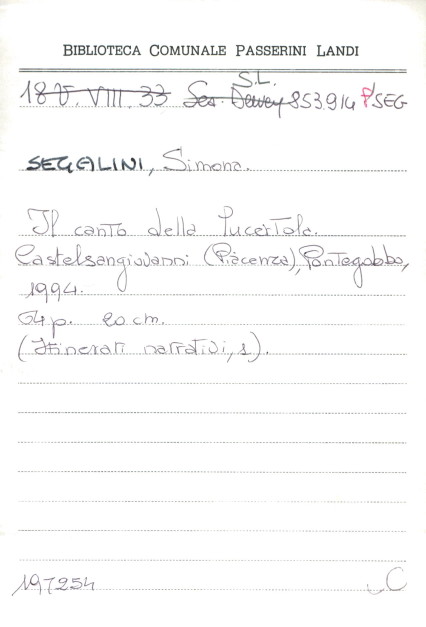 BIBLIOTECA COMUNALE PASSERINI LANDI
S.L.
18 V. VIII. 33 Ses. Dewey 853.914 P/SEG
SEGALINI, Simona.
Il canto della lucertola.
Castelsangiovanni (Piacenza), Pontegobbo,
1994.
64 p. 20 cm.
(Itinerari narrativi, 1).
197254 C